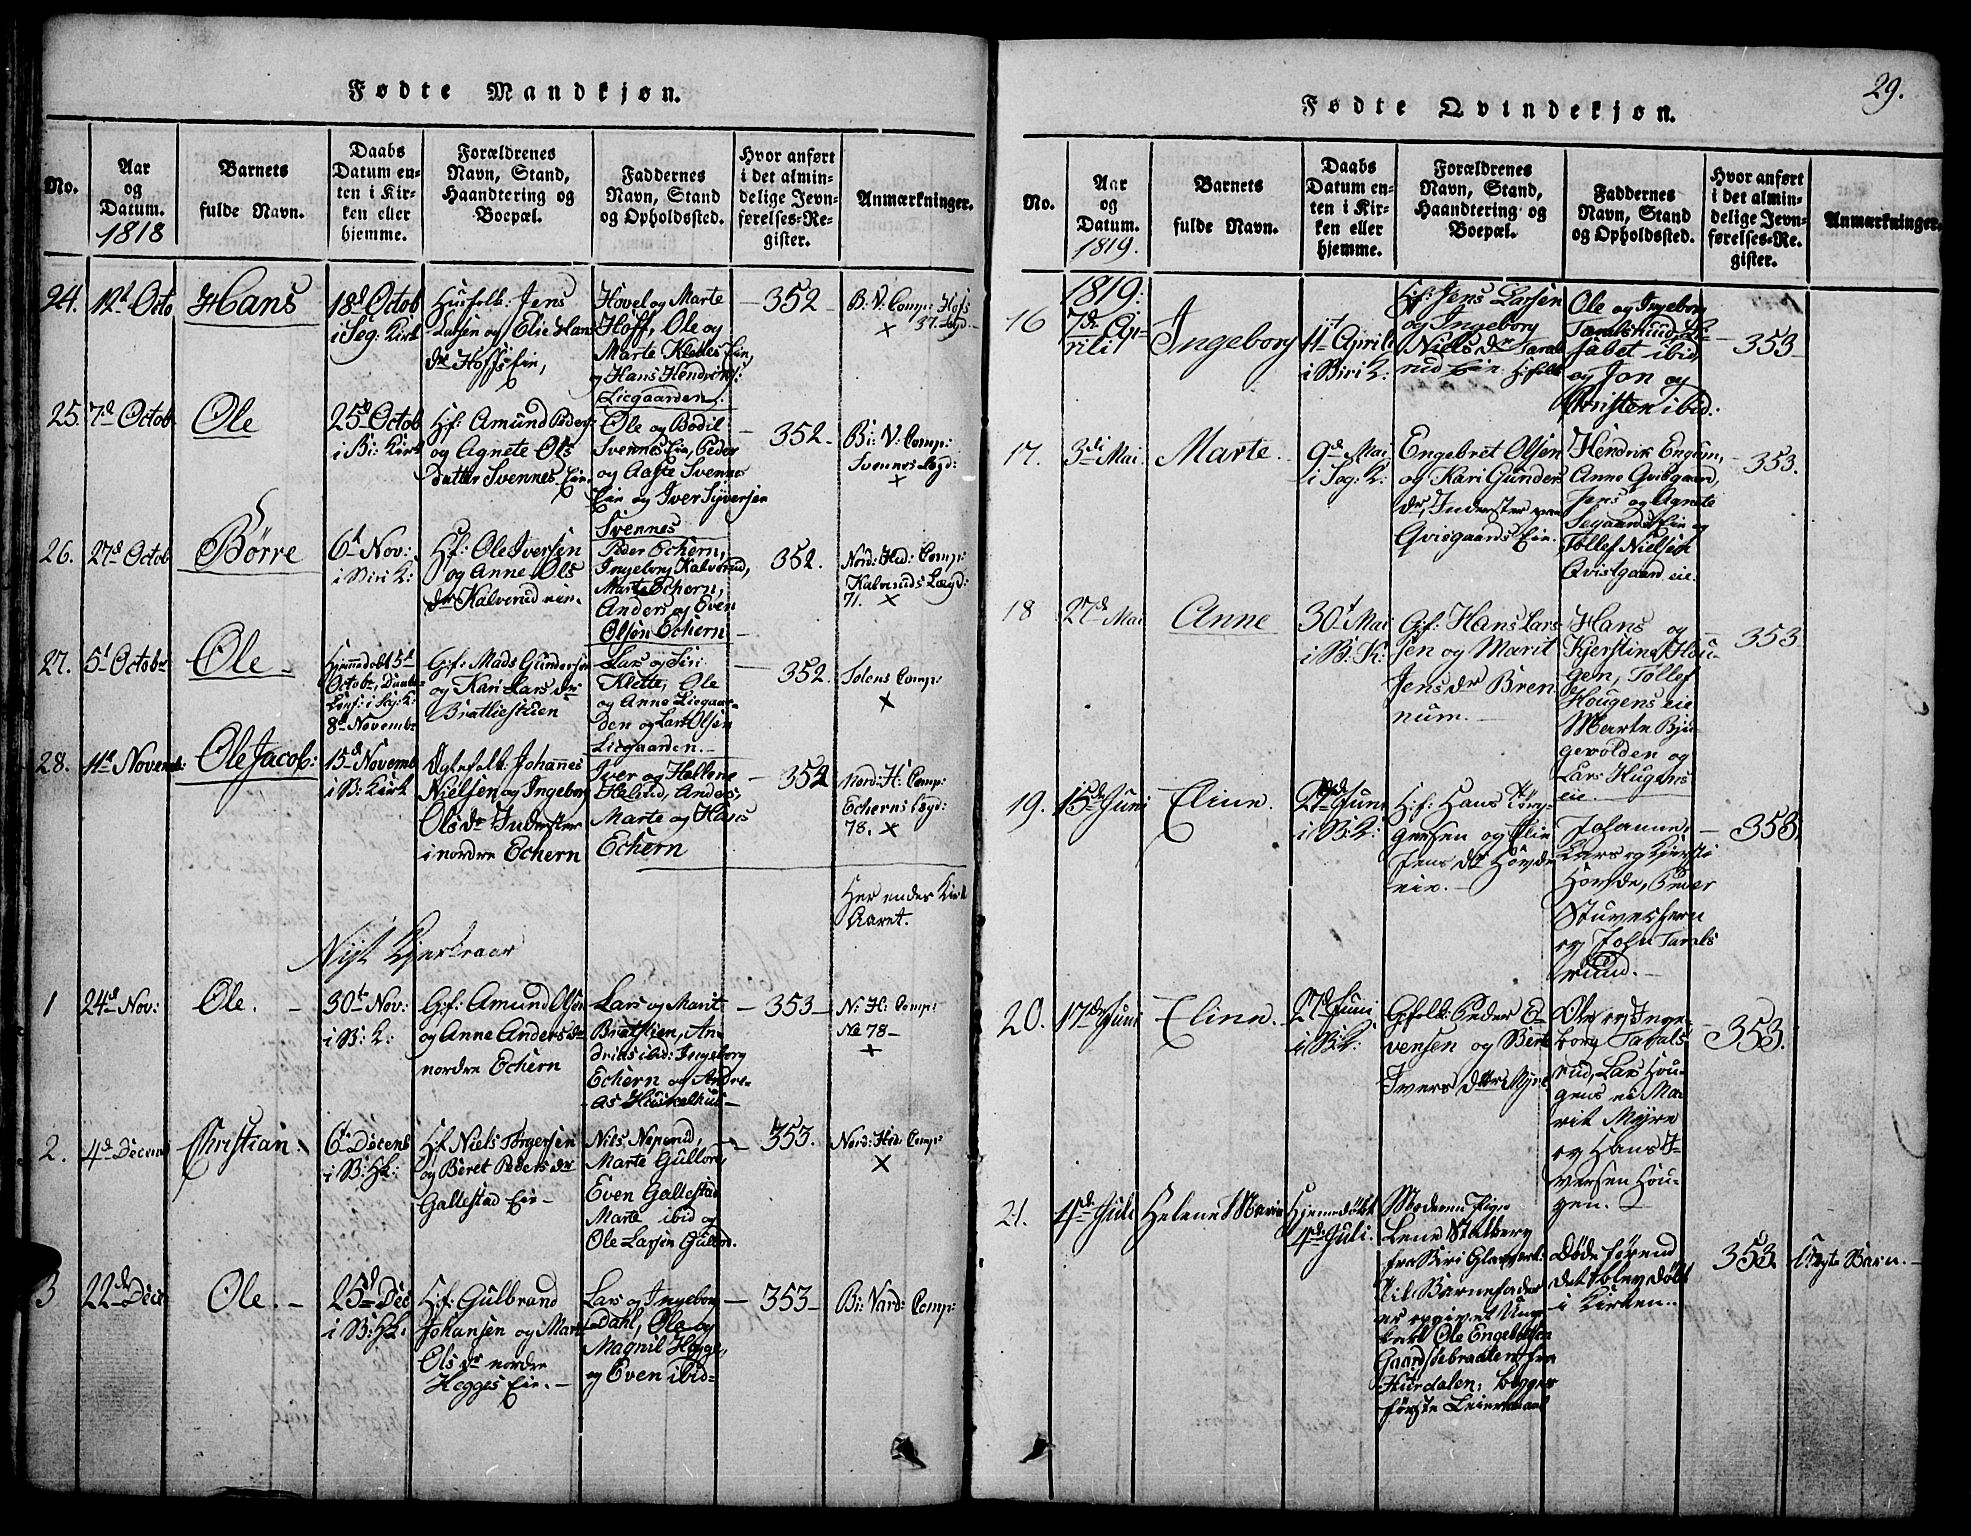 Fødte Mandkjøn.
No.
Aar
og
Datum.
1818
Barnets
fulde Navn.
Daabs
Datum en-
ten i Kir-
ken eller
hjemme.
Forældrenes
Navn, Stand,
Haandtering og
Boepæl.
Faddernes
Navn, Stand
og Opholdssted.
Hvor anført
i det almin-
delige Jevn-
førelses-Re-
gister.
Anmærkninger.
24.
12t Octo
Hans
18d Octob
i Seg: Kirk
Husfolk: Jens
Larsen og Elie Hans
dr Hoffs Eie,
Hovel og Marte
Hoff, Ole og
Marte Klettes Eie,
og Hans Hendriks:
Liegaarden.
352
B. V. Comp: Hofs
37. Lægd.
×
25.
7d Octob
Ole
25d Octob
i Bi: Kirk
H.f: Amund Peders:
og Agnete Ols
Datter Svennes Eie.
Ole og Bodil
Svennes Eie, Peder
og Aaste Svennes
Eie og Iver Syversen
Svennes
352.
Bi: V: Comp:
Svennes Lægd:
×
26.
27d Octob
Børre
6t Nov:
i Biri K:
H.f: Ole Iversen
og Anne Ols
dr Kalverud eie.
Peder Echern,
Ingeborg Kalverud,
Marte Echern,
Anders og Even
Olsen Echern
352.
Nord: Hed: Comp:
Kalveruds Lægd:
71. ×
27.
5t Octobr
Ole
Hjemmedøbt 5d
Octobr, Daabe
Conf: i Seg: K:
8d Novembr
G.f: Mads Gundersen
og Kari Lars dr
Bratliestuen
Lars og Siri
Klette, Ole
og Anne Liegaar-
den og Lars Olsen
Liegaarden.
352.
Tolens Comp:
×
28.
11d Novemb:
Ole Jacob:
15d Novemb
i B: Kirk
Ægtefolk: Johannes
Nielsen og Ingeborg
Ols dr Inderster
i nordre Echern
Iver og Hellene
Halsted, Anders,
Marte og Hans
Echern
352
Nord: H: Comp:
Echerns Lægd:
78. ×
Her ender Kirk
Aaret.
Nyt Kjerkeaar
1
24d Nov:
Ole.
30te Nov:
i B: K:
G.f: Amund Olsen
og Anne Anders dr
nordre Echern
Lars og Marit
Bratlien, An-
drias ibid: Ingeborg
Echern og Andre-
as Huskelhus
353
N: H: Comp:
No 78
×
2.
4d Decem
Christian.
6t Decemb
i B: Hk:
H.f: Niels Torgersen
og Beret Peders dr
Gallestad Eie
Nils Neperud,
Marte Gullord,
Even Gallestad
Marte ibid og
Ole Larsen Gullord.
353.
Nord: Hed: Comp:
×
3
22de Dec
Ole.
25d Dec
i B: Hk:
H.f: Gulbrand
Johansen og Marte
Ols dr nordre
Hegges Eie.
Lars og Ingeborg
Dahl, Ole og
Magnil Hegge,
og Even ibid
353
Bi: Vard: Comp:
29.
Fødte Qvindekjøn.
No.
Aar
og
Datum.
1819.
Barnets
fulde Navn.
Daabs
Datum en-
ten i Kir-
ken eller
hjemme.
Forældrenes
Navn, Stand,
Haandtering og
Boepæl.
Faddernes
Navn, Stand
og Opholdssted.
Hvor anført
i det almin-
delige Jevn-
førelses-Re-
gister.
Anmærkninger.
1819.
16
7de Ap-
rili
Ingeborg
11t Aprili
i Biri K:
H.f: Jens Larsen
og Ingeborg
Niels dr Tarals
rud Eie
Ole og Ingeborg
Taralsrud, Eli-
sabet ibid
og Jon og
Kristen ibid:
353
17.
3di Mai
Marte.
9d Mai
i Seg: K:
Engebret Olsen
og Kari Gunders
dr, Inderster paa
Qvisgaards Eie.
Hendrik Engum,
Anne Qvisgaard,
Jens og Agnete
Segaards Eie og
Tollef Nielsen
Qvistgaard eie.
353.
18
27d Mai
Anne
30t Mai
i B: K:
G.f: Hans Lars-
sen og Marit
Jens dr Bren-
num.
Hans og
Kjerstine Hou-
gen, Tollef
Hougens eie
Marte Byn-
gevolden og
Lars Hugens
eie.
353
19.
15de Juni
Elinn.
27d Juni
i B: K:
H.f: Hans Törg-
gersen og Elie
Jens dr Hovde
eie.
Johanne,
Lars og Kjersti
Hovde, Peder
Stuveshern
og John Tarals
ruud.
353.
20.
17de Juni
Elinn.
27d Juni
i B: K:
G.folk: Peder E-
vensen og Berte
Ivers datter Myre
Ole og Inge-
borg Tarals
rud, Lars Hou-
gens ei Ma-
rit Myre
og Hans I-
versen Hou-
gen.
353.
21.
4de Juli
Helene Marie
Hjemmedøbt
4de Juli.
Moderen Pige
Lene Stalberg
fra Biri Glasverk:
Til Barnefader
er opgivet Ung-
karl Ole Engebretsen
Gaardsøebraaten fra
Hurdalen: begges
første Leiermaal
Døde førend
det blev døbt
i Kirken.
353.
Uægte Barn.